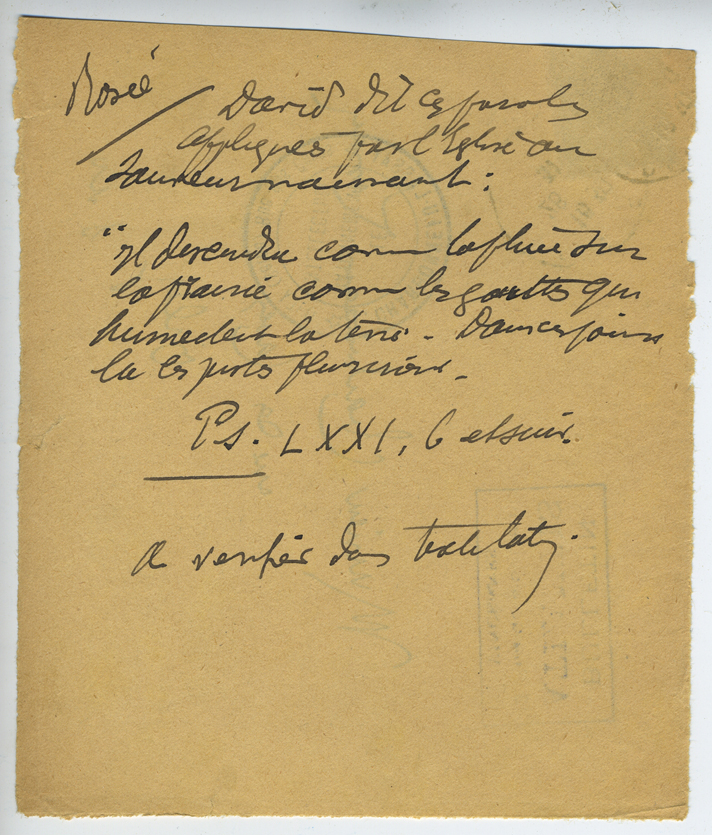 Rosée
David dit ces paroles
appliquées par l'Eglise au
Sauveur naissant :
"Il descendra comme la pluie sur
la prairie comme les gouttes qui
humectent la terre. Dans ces jours
là les justes fleuriront.
Ps. LXXI, 6 et suiv.
A vérifier dans